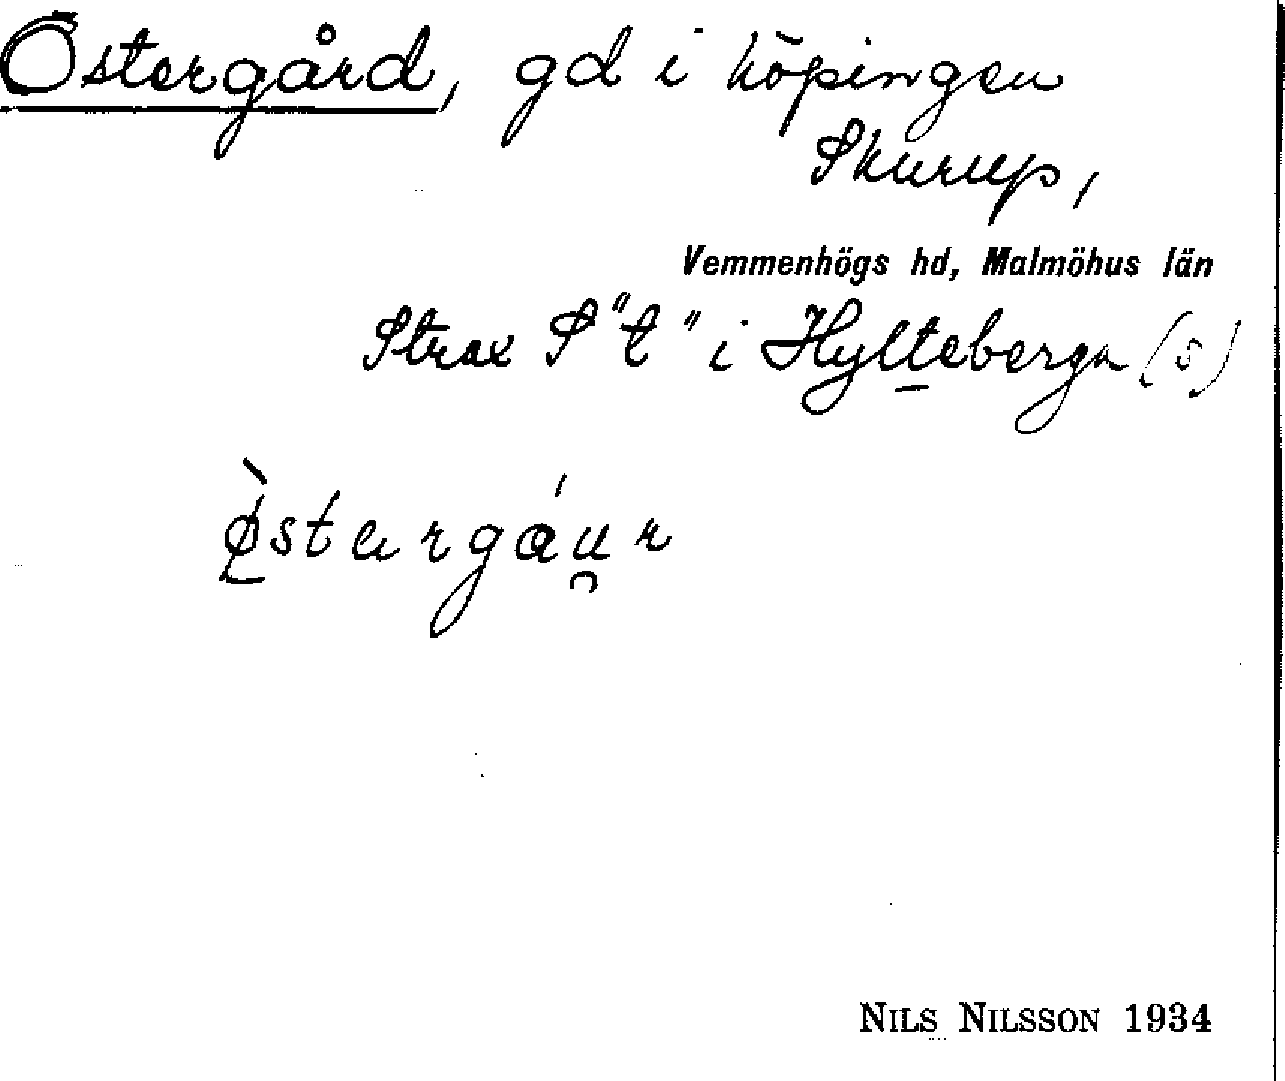 Östergård, gd i köpingen
Skurup,
Vemmenhögs hd, Malmöhus län
Strax S "t" i Hylteberga (s)
NILS NILSSON 1934